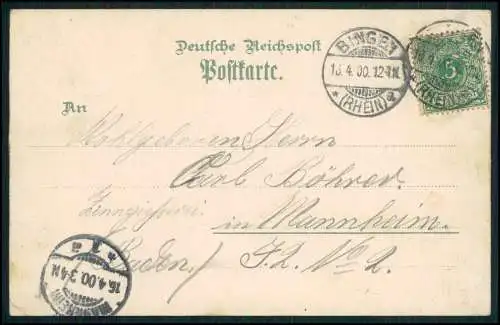 Deutsche Reichspost
Postkarte.
BINGEN
16.4.00.12-1N.
* (RHEIN) *
5
(RHEIN)
An
Wohlgeboren Herrn
Carl Böhrer.
Zinngießerei
in Mannheim.
(Baden.) F. 2. No 2.
MANNHEIM
16.4.00.3-4N